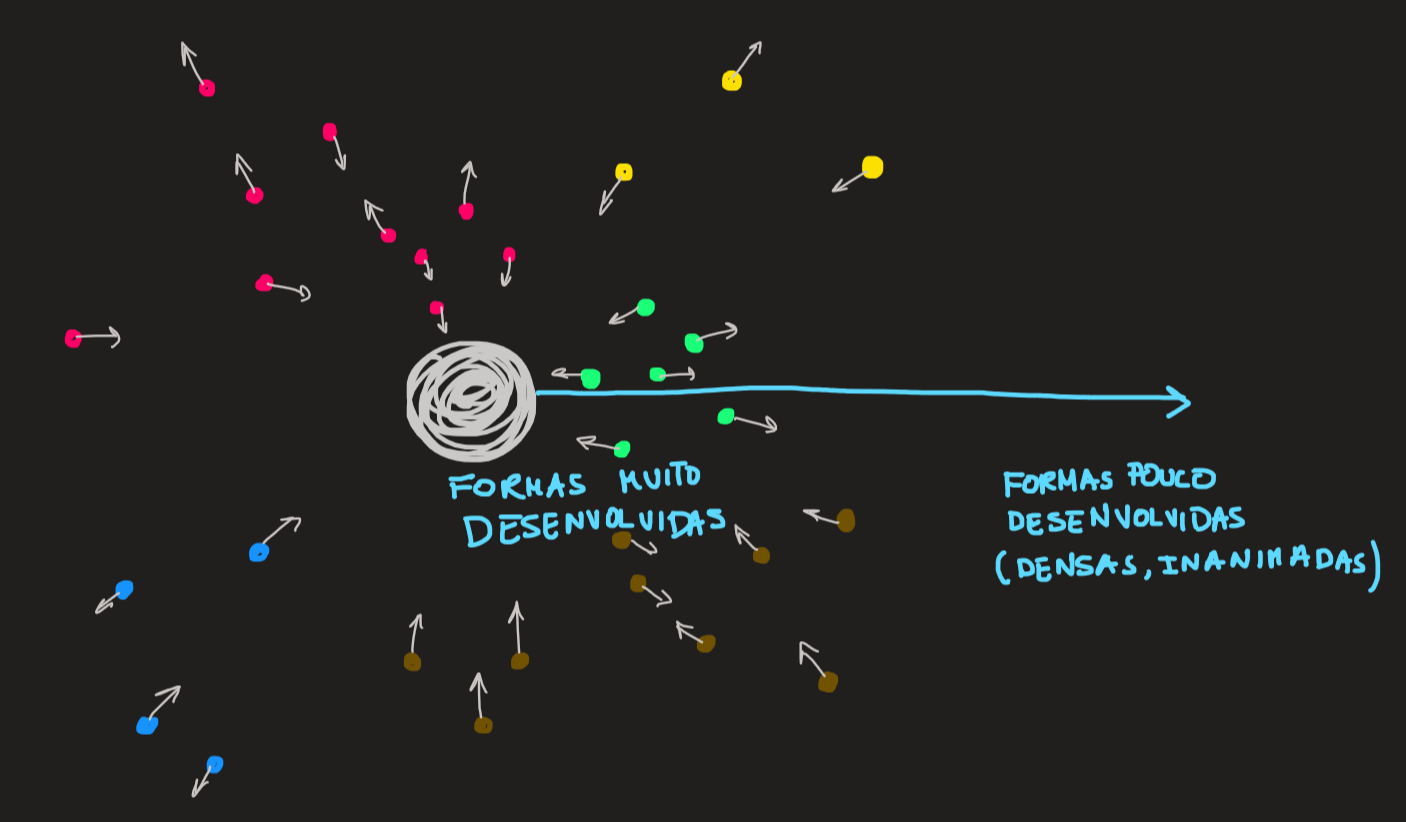 FORMAS MUITO
DESENVOLVIDAS
FORMAS POUCO
DESENVOLVIDAS
(DENSAS, INANIMADAS)